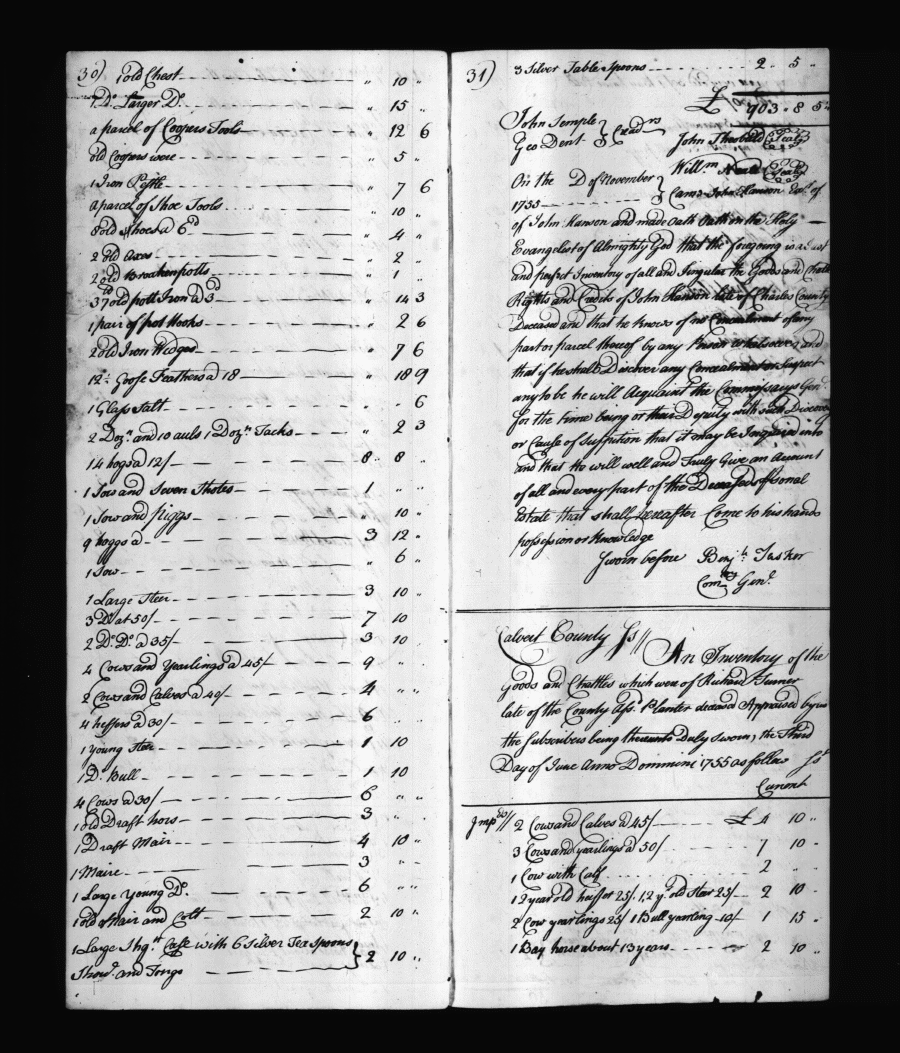 30) 1 old Chest " 10 "
1 Do. Larger Do. " 15 "
a parcel of Coopers Tools " 12 6
old Coopers ware " 5 "
1 Iron Pestle " 7 6
a parcel of Shoe Tools " 10 "
8 old Shoes a 6d " 4 "
2 old axes " 2 "
2 old Broaken potts " 1 "
37 lb old pott Iron a 3d " 14 3
1 pair of pot Hooks " 2 6
2 old Iron Wedges " 7 6
12 Goose Feathers a 18 " 18 9
1 Glass Salt " " 6
2 Dozn. and 10 auls 1 Dozn. Tacks " 2 3
14 hogs a 12/ 8 " 8 "
1 Sow and Seven Shotes 1 " "
1 Sow and piggs " 10 "
9 hoggs a 3 12 "
1 Sow " 6 "
1 Large Steer 3 10 "
3 Do. at 50/ 7 10 "
2 Do. Do. a 35/ 3 10 "
4 Cows and Yearlings a 45/ 9 " "
2 Cows and Calves a 40/ 4 " "
4 heffers a 30/ 6 " "
1 young Steer 1 10
1 Do. Bull 1 10
4 Cows a 30/ 6 " "
1 old Draft hors 3 " "
1 Draft Mair 4 10 "
1 Maire 3 " "
1 Large young Do. 6 " "
1 old Mair and Colt 2 10 "
1 Large Case with 6 Silver Tea Spoons
and Tongs } 2 10 "
31) 3 Silver Table Spoons 2 " 5 "
£ 903 " 8 5
John Semple }
Geo Dent } Credrs
John Theobald
Willm. Neale
On the D of November }
1755 } Came John Hanson Exr. of
of John Hanson and made oath on the Holy
Evangelest of Almighty God that the foregoing is a Just
and perfect Inventory of all and Singular the Goods and Chatt
Rights and Credits of John Hanson late of Charles County
Deceased and that he knows of no Concealment of any
part or parcel thereof by any Person whatsoever and
that if he shall Discover any Concealment or Suspect
any to be he will Acquaint the Commissary Genl
for the time being or their Deputy with such Discovery
or Cause of Suspition that it may be Inquired into
and that he will well and Truly Give an Account
of all and every part of the Deceaseds psonal
Estate that shall hereafter Come to his hands
possession or Knowledge
Sworn before Benjn. Tasker
Comry. Genl.
Calvert County Ss // An Inventory of the
Goods and Chattles which were of Richard
late of the County afs. Planter deceased Appraised by us
the Subscribers being thereunto Duly Sworn, the Third
Day of June Anno Dommini 1755 as follow
Curront
Imps // 2 Cows and Calves a 45/ £ 4 10 "
3 Cows and yearlings a 50/ 7 10 "
1 Cow with Calf 2 "
1 2 year old heiffer 25/. 1, 2 yr. old Steer 25/ 2 10 "
2 Cow yearlings 25/ 1 Bull yearling 10/ 1 15 "
1 Bay horse about 13 years 2 10 "